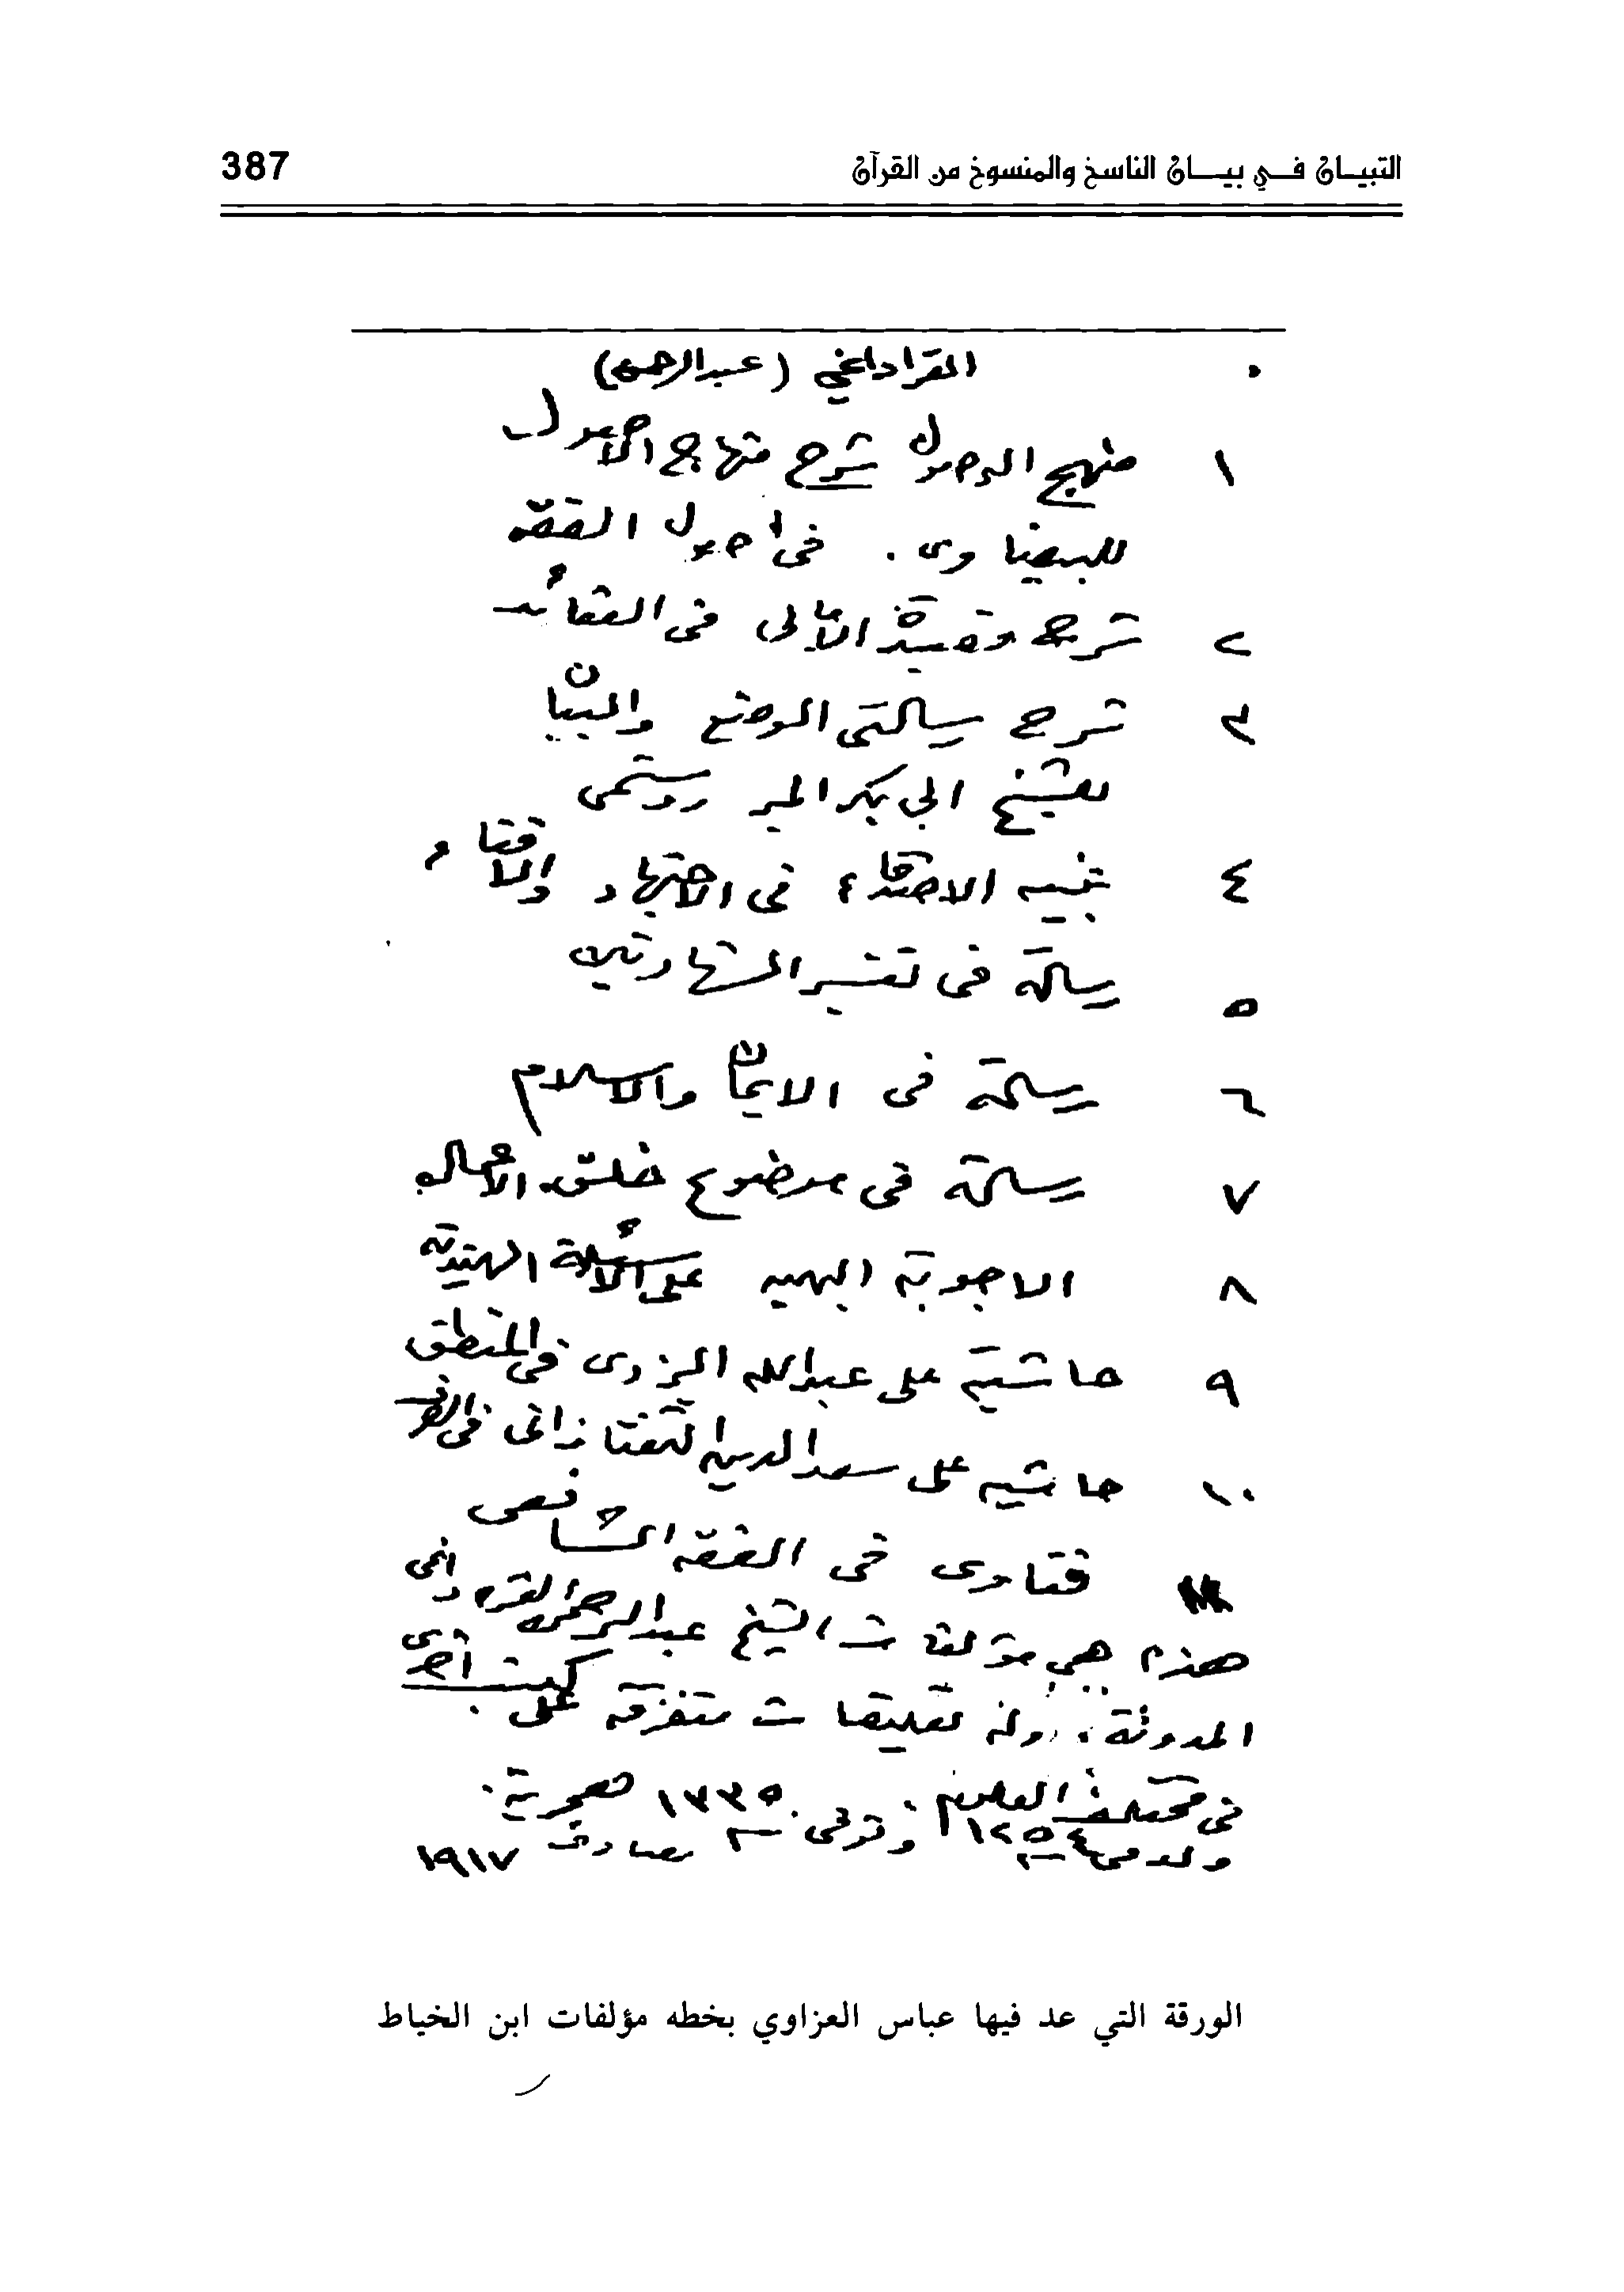 التبيان في بيان الناسخ والمنسوخ من القرآن 387
القراداغي (عبدالرحمن)
١ منهج الوصول شرح منهاج الاصول
للبيضاوى . فى اصول الفقه
٢ شرح قصيدة الامالى فى العقائد
٣ شرح رسالتى الوضع والبيان
للشيخ ابي بكر المير روستمى
٤ تنبيه الاصدقاء فى الاجتهاد والافتاء
٥ رسالة فى تفسير الشهادتين
٦ رسالة فى الايمان والاسلام
٧ رسالة فى موضوع خلق الاعمال
٨ الاجوبة البهيه على الأسئلة الهندية
٩ حاشية على عبدالله اليزدى فى المنطق
١٠ حاشيه على سعد الدين التفتازانى فى الصرف
١١ فتاوى فى الفقه الشافعى
هذه هي مؤلفات الشيخ عبدالرحمن القره داغى
المدونة، وله تعليقات متفرقة على كتب أخرى
فى مختلف العلوم
ولد فى ١٢٥٤ وتوفى ١٣٣٥ هجرية
يصادف ١٩١٧
الورقة التي عد فيها عباس العزاوي بخطه مؤلفات ابن الخياط